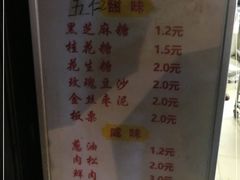 五仁甜味
黑芝麻糖 1.2元
桂花糖 1.5元
花生糖 2.0元
玫瑰豆沙 2.0元
金丝枣泥 2.0元
板栗 2.0元
咸味
葱油 1.2元
肉松 2.0元
鲜肉